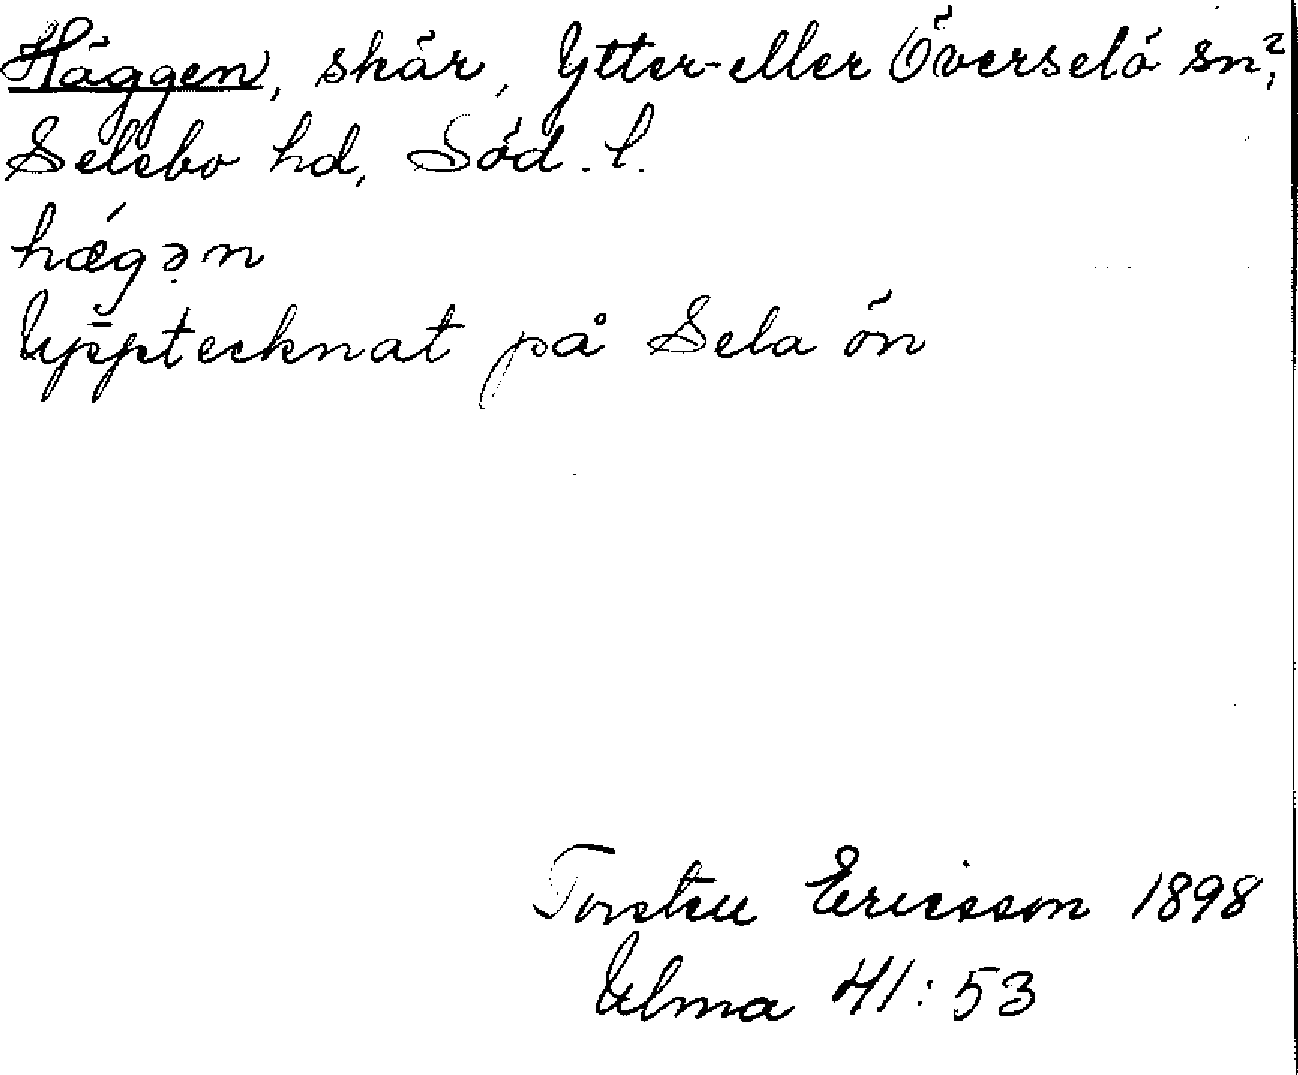 Häggen, skär, Ytter- eller Överselö sn?,
Selebo hd, Söd. l.
hǽgə̣n
Upptecknat på Sela ön
Torsten Ericsson 1898
Ulma 41:53